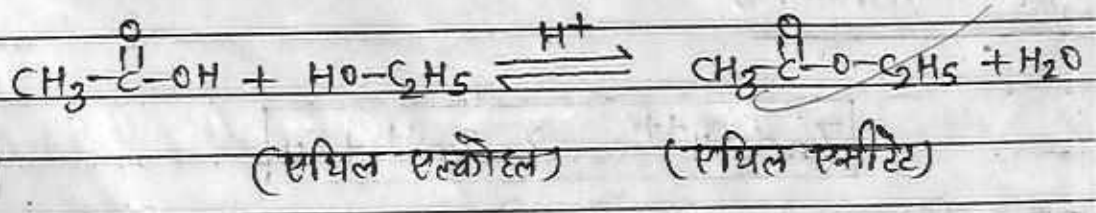 CH₃-C(=O)-OH + HO-C₂H₅ ⇌[H⁺] CH₃-C(=O)-O-C₂H₅ + H₂O
(एथिल एल्कोहल) (एथिल एसीटेट)